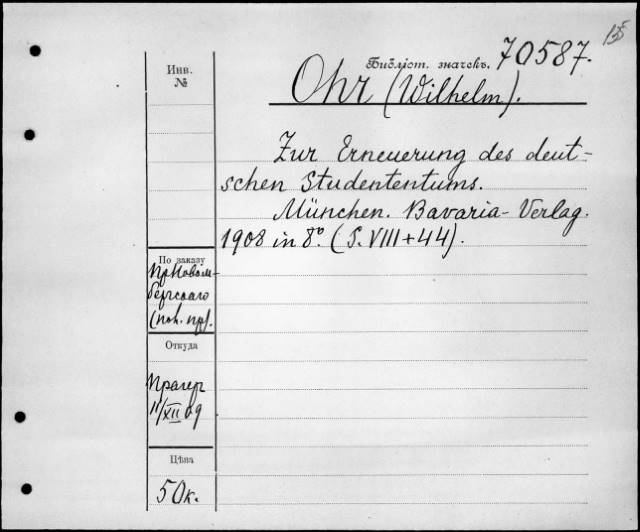 135
Библіот. значекъ. 70587.
Инв.
№
Ohr (Wilhelm).
Zur Erneuerung des deut-
schen Studententums.
München. Bavaria-Verlag.
1908 in 8º. (S. VIII+44).
По заказу
Пр. Новом-
бергскаго
Откуда
Прагер
11/XII 09
Цѣна
50к.